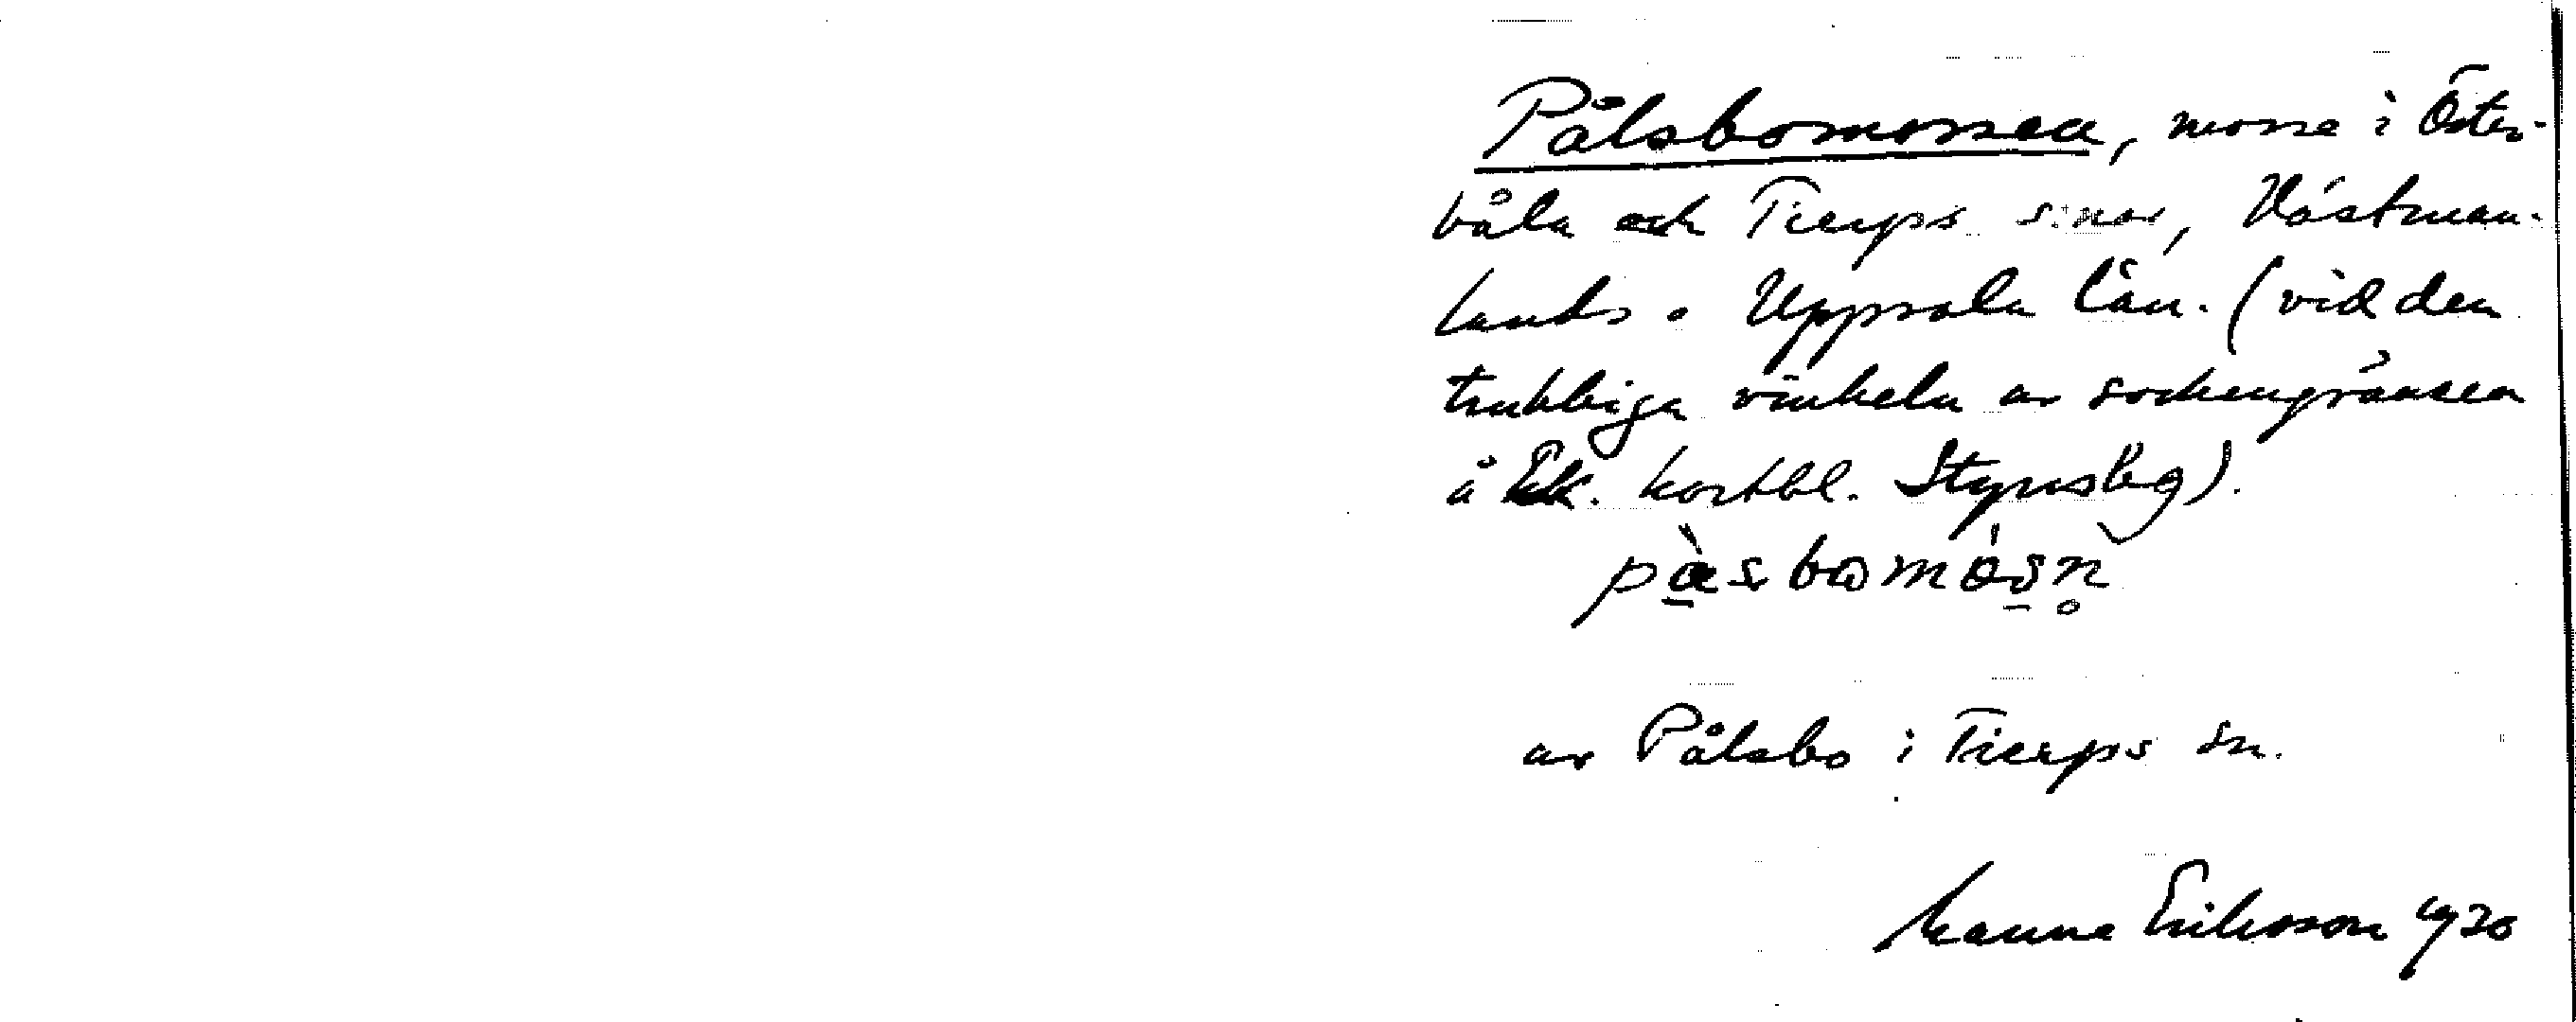 Pålsbomossen, mosse i Öster-
våla och Tierps s:nar, Västman-
lands o Uppsala län. (vid den
trubbiga vinkeln av sockengränsen
å Ek. kartbl. Stymsbg).
pàsbomósn̥
av Pålsbo i Tierps sn.
Manne Eriksson 1930